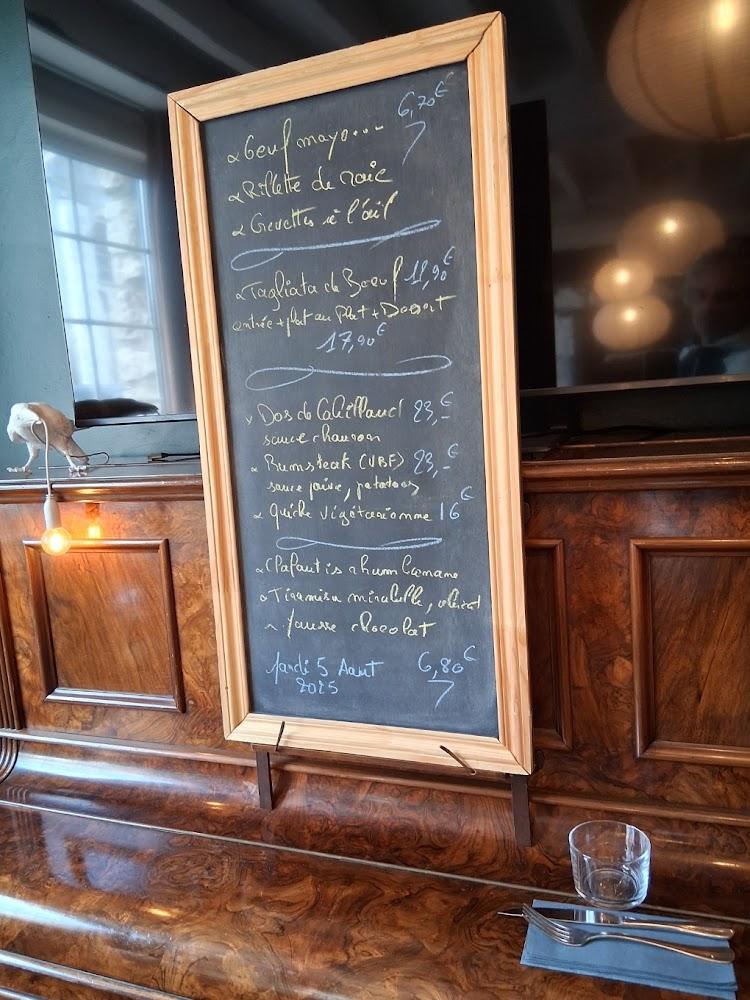 Oeuf mayo... 6,70€
Rillette de raie
Crevettes à l'ail
Tagliata de Boeuf 11,90€
entrée + plat ou Plat + Dessert
17,90€
Dos de Cabillaud 23,-€
sauce chorizon
Rumsteak (VBF) 23,-€
sauce poivre, potatoes
Quiche végétarienne 16€
Clafoutis rhum banane
Tiramisu mirabelle,
Mousse chocolat
Mardi 5 Août 6,80€
2025